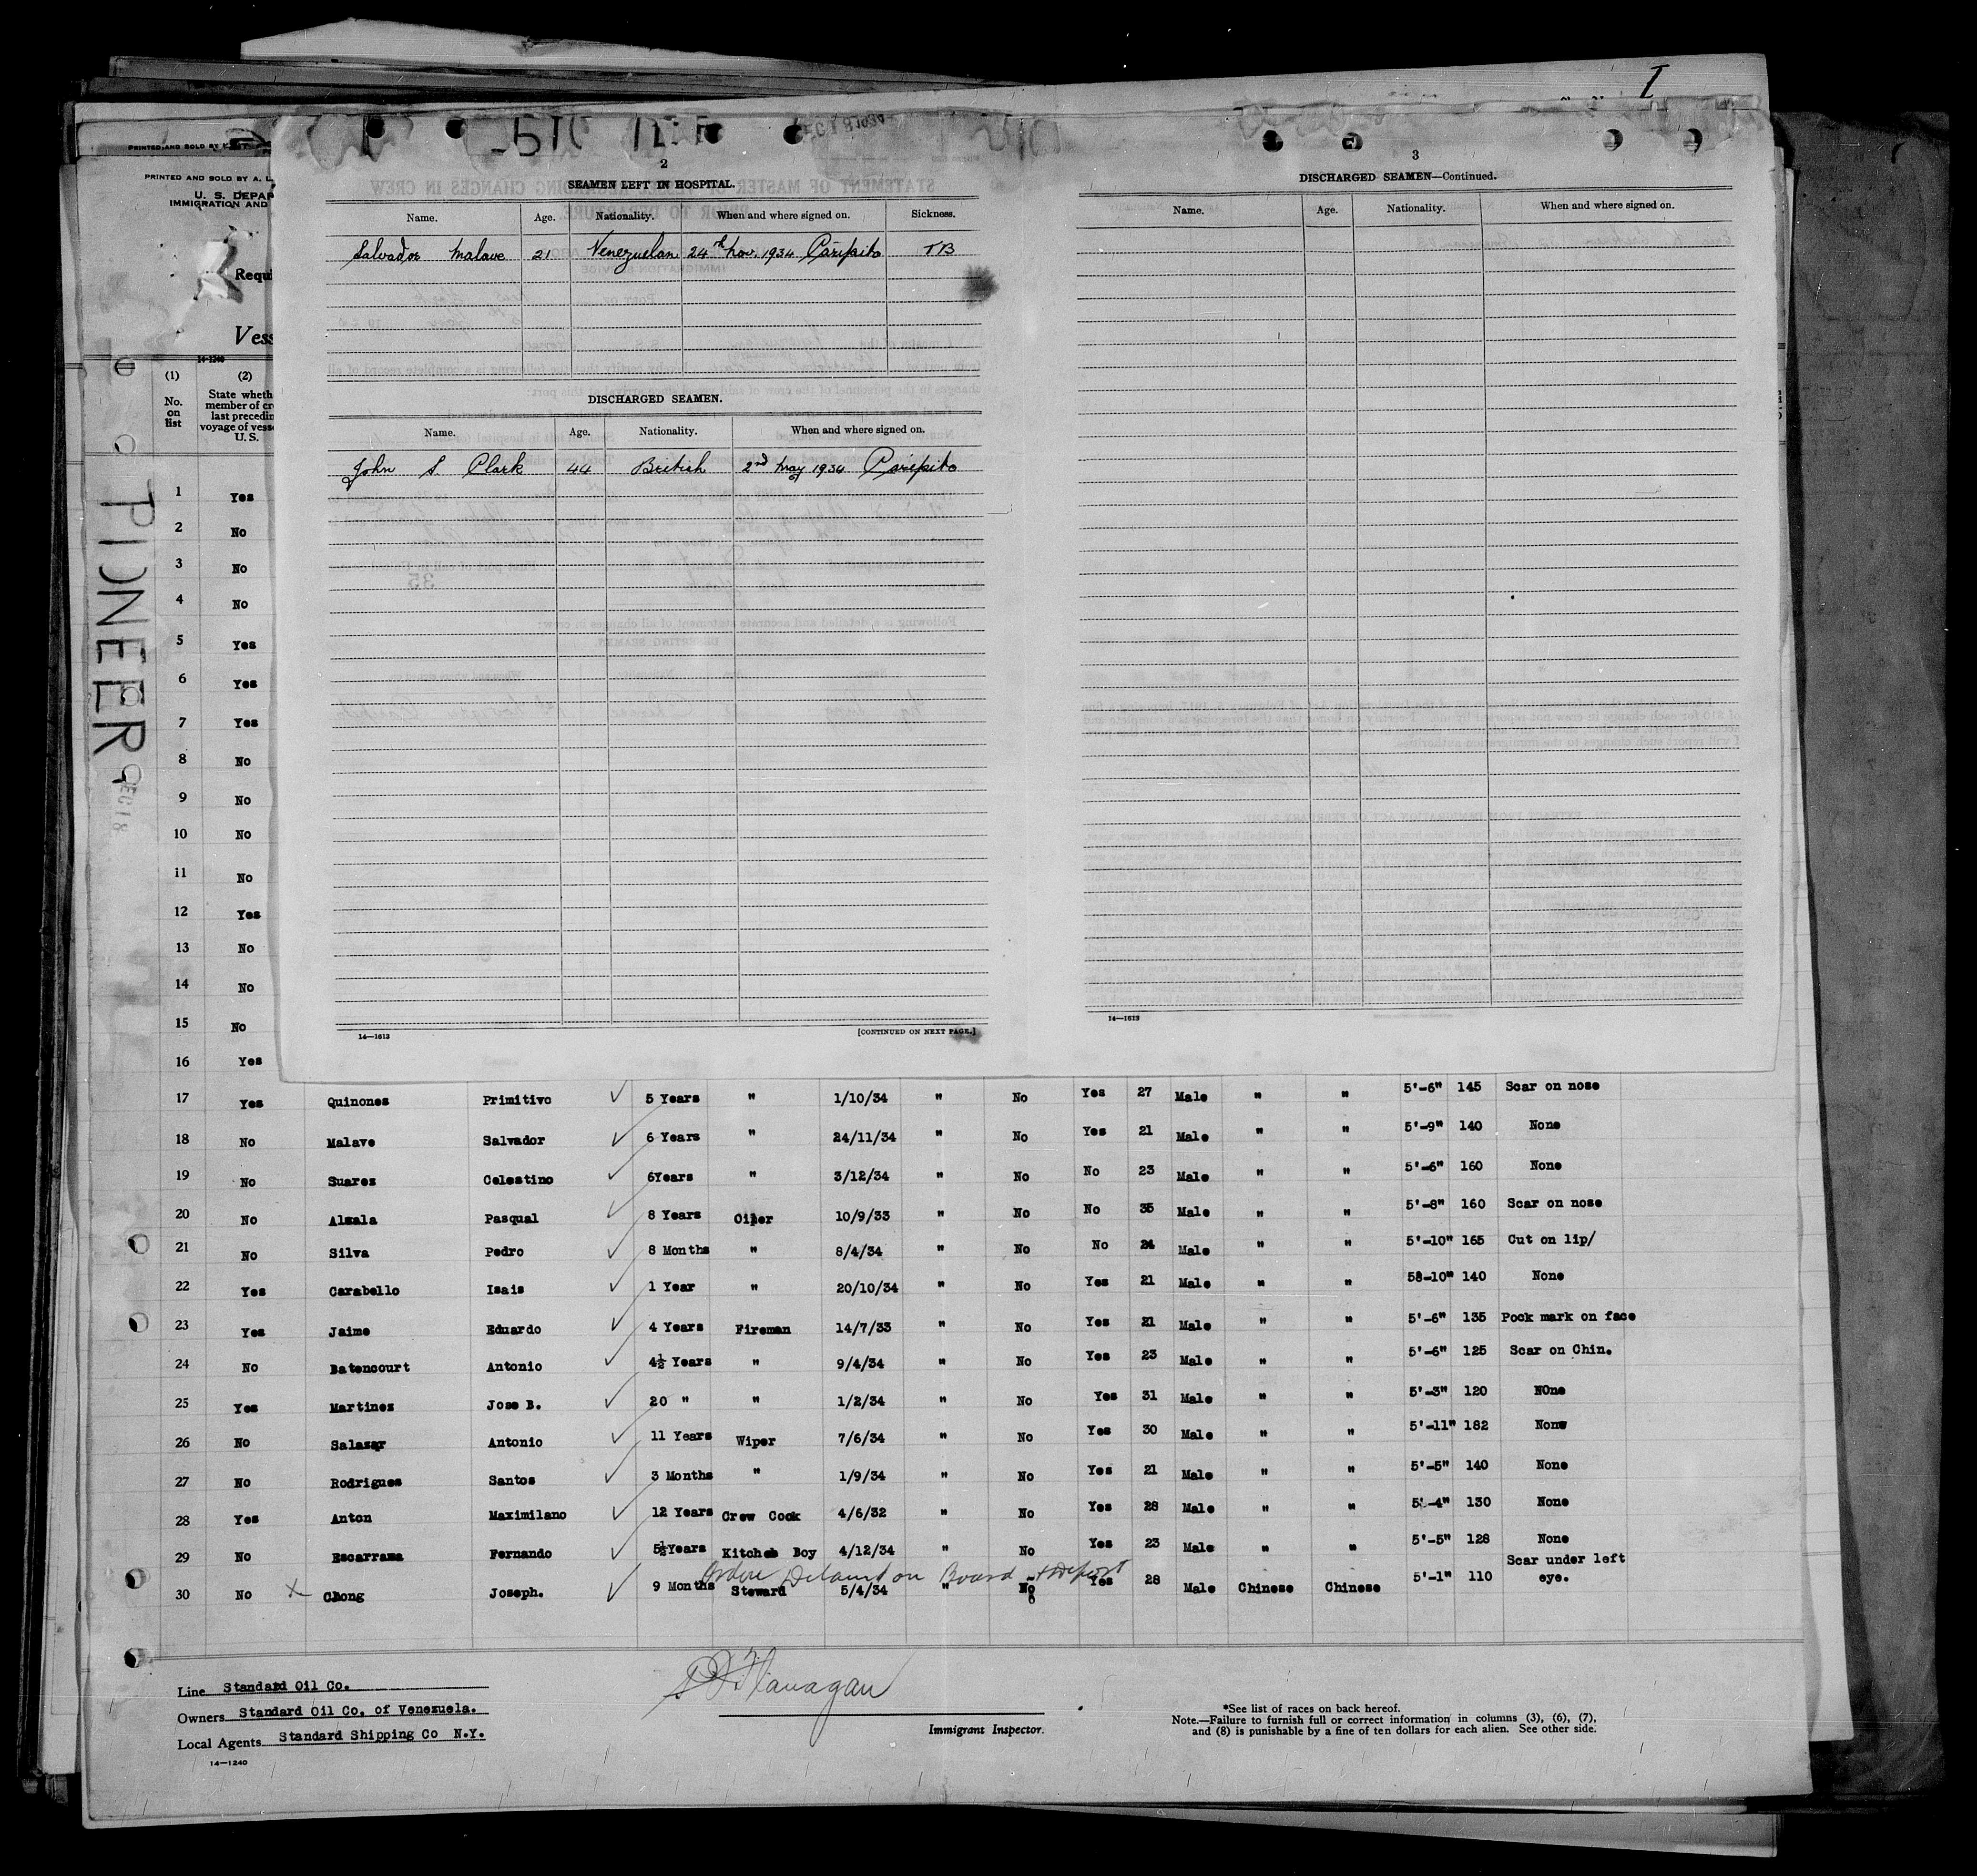 I
PRINTED AND SOLD BY
PRINTED AND SOLD BY A. L.
U. S. DEPAR
IMMIGRATION AND
Requi
Vess
14-1240
(1) (2)
No. on list State wheth member of cre last precedin voyage of vess U.S.
PIONEER
DEC 18
1 Yes
2 No
3 No
4 No
5 Yes
6 Yes
7 Yes
8 No
9 No
10 No
11 No
12 Yes
13 No
14 No
15 No
16 Yes
2
SEAMEN LEFT IN HOSPITAL.
Name. Age. Nationality. When and where signed on. Sickness.
Salvador Malave 21 Venezuelan 24th Nov. 1934 Caripito TB
DISCHARGED SEAMEN.
Name. Age. Nationality. When and where signed on.
John S. Clark 44 British 2nd May 1934 Caripito
14—1613 [CONTINUED ON NEXT PAGE.]
3
DISCHARGED SEAMEN—Continued.
Name. Age. Nationality. When and where signed on.
14—1613
17 Yes Quinones Primitivo 5 Years " 1/10/34 " No Yes 27 Male " " 5'-6" 145 Scar on nose
18 No Malave Salvador 6 Years " 24/11/34 " No Yes 21 Male " " 5'-9" 140 None
19 No Suarez Celestino 6Years " 3/12/34 " No No 23 Male " " 5'-6" 160 None
20 No Alzala Pasqual 8 Years Oiler 10/9/33 " No No 35 Male " " 5'-8" 160 Scar on nose
21 No Silva Pedro 8 Months " 8/4/34 " No No 24 Male " " 5'-10" 165 Cut on lip/
22 Yes Carabello Isais 1 Year " 20/10/34 " No Yes 21 Male " " 58-10" 140 None
23 Yes Jaime Eduardo 4 Years Fireman 14/7/33 " No Yes 21 Male " " 5'-6" 135 Pock mark on face
24 No Batencourt Antonio 4½ Years " 9/4/34 " No Yes 23 Male " " 5'-6" 125 Scar on Chin.
25 Yes Martinez Jose B. 20 " " 1/2/34 " No Yes 31 Male " " 5'-3" 120 NOne
26 No Salazar Antonio 11 Years Wiper 7/6/34 " No Yes 30 Male " " 5'-11" 182 None
27 No Rodrigues Santos 3 Months " 1/9/34 " No Yes 21 Male " " 5'-5" 140 None
28 Yes Anton Maximilano 12 Years Crew Cook 4/6/32 " No Yes 28 Male " " 5'-4" 130 None
29 No Escarrama Fernando 5½Years Kitchen Boy 4/12/34 " No Yes 23 Male " " 5'-5" 128 None
Detained on Board + deport
30 No X Chong Joseph. 9 Months Steward 5/4/34 " No Yes 28 Male Chinese Chinese 5'-1" 110 Scar under left eye.
Line Standard Oil Co.
Owners Standard Oil Co. of Venezuela.
Local Agents Standard Shipping Co N.Y.
14—1240
Flanagan
Immigrant Inspector.
*See list of races on back hereof.
Note.—Failure to furnish full or correct information in columns (3), (6), (7),
and (8) is punishable by a fine of ten dollars for each alien. See other side.